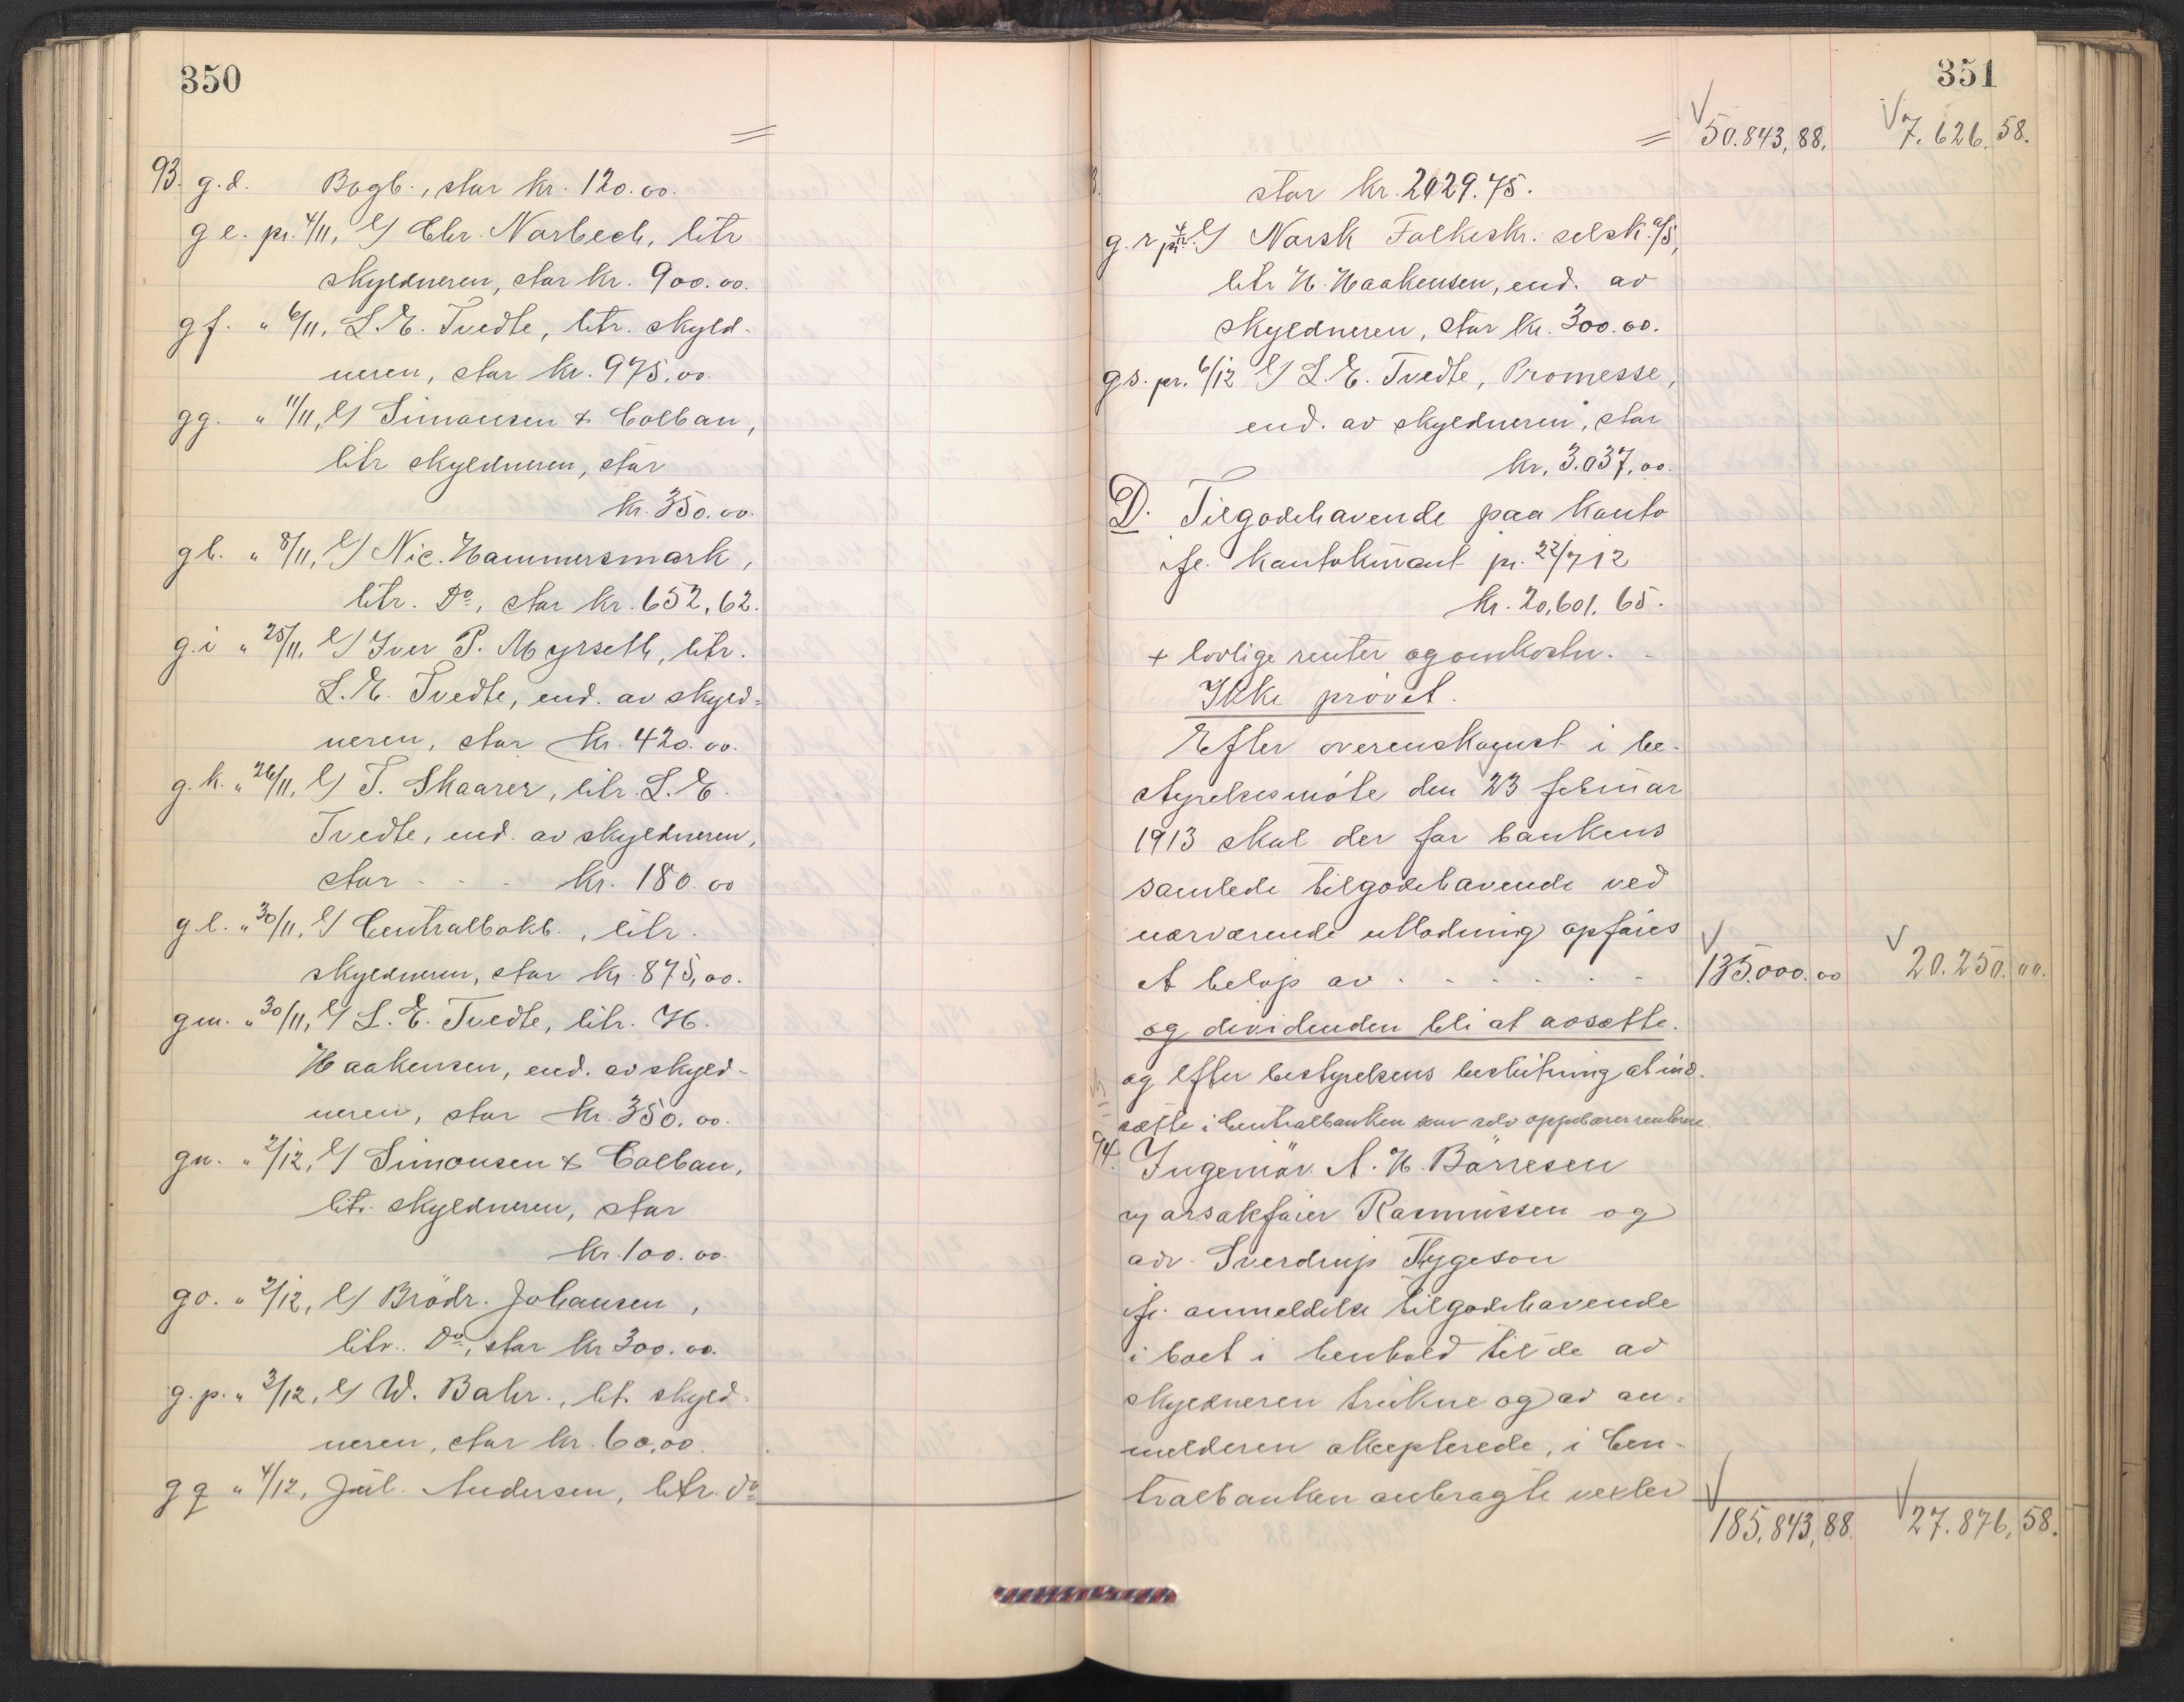 350
=
93. g.d. Bogb., stor kr. 120.00.
g e. pr. 4/11, e/ Chr. Norbech, litr
skyldneren, stor kr. 900.00.
g f. " 6/11, L. E. Tvedte, litr. skyld-
neren, stor kr. 975.00.
g g. " 11/11, e/ Simonsen & Colban,
litr skyldneren, stor
kr. 350.00.
g h. " 8/11, e/ Nic. Hammersmark,
litr. Do, stor kr. 652,62.
g. i " 25/11, e/ Iver P. Myrseth, litr.
L. E. Tvedte, end. av skyld-
neren, stor kr. 420.00.
g. k. " 26/11, e/ T. Skaarer, litr. L. E.
Tvedte, end. av skyldneren,
stor - - - kr. 180.00
g. l. " 30/11, e/ Centralbokb., litr.
skyldneren, stor kr. 875,00.
g m. " 30/11, e/ L. E. Tvedte, litr. H.
Haakensen, end. av skyld-
neren, stor kr. 350.00.
g n. " 2/12, e/ Simonsen & Colban,
litr. skyldneren, stor
kr. 100.00.
g o. " 2/12, e/ Brødr. Johansen,
litr. Do, stor kr 300.00.
g. p. " 3/12, e/ W. Bahr., lit. skyld-
neren, stor kr. 60,00.
g q " 4/12, Jul. Andersen, litr. do
351
= 50.843,88. 7.626,58.
stor kr. 2129.75.
g. r pr. e/ Norsk Folkeskr. selsk. a/s,
litr H. Haakensen, end. av
skyldneren, stor kr. 300.00.
g s. pr. 6/12 e/ L. E. Tvedte, Promesse,
end. av skyldneren, stor
kr. 3.037,00.
D. Tilgodehavende paa konto
ifl. kontokurant pr. 22/7 12
kr. 20,601.65.
+ lovlige renter og omkostn. -
Ikke prøvet.
Efter overenskomst i be-
styrelsesmøte den 23 februar
1913 skal der for bankens
samlede tilgodehavende ved
nærværende utlodning opføres
et beløp av - - - - - - 135.000.00 20.250.00.
og dividenden bli at avsætte.
og efter bestyrelsens beslutning at ind-
sætte i Centralbanken som selv oppebærer renterne
94. Ingeniør A. H. Børresen
v/ orsakfører Rasmussen og
adv. Sverdrup Thygeson
ifl. anmeldelse tilgodehavende
i boet i henhold til de av
skyldneren trukne og av an-
melderen aksepterede, i Cen-
tralbanken anbragte veksler
185,843,88. 27.876,58.